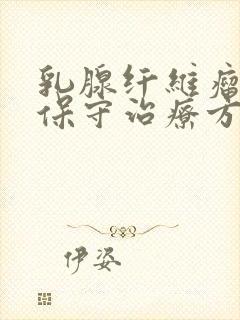 乳腺纤维瘤
保守治疗方
伊姿